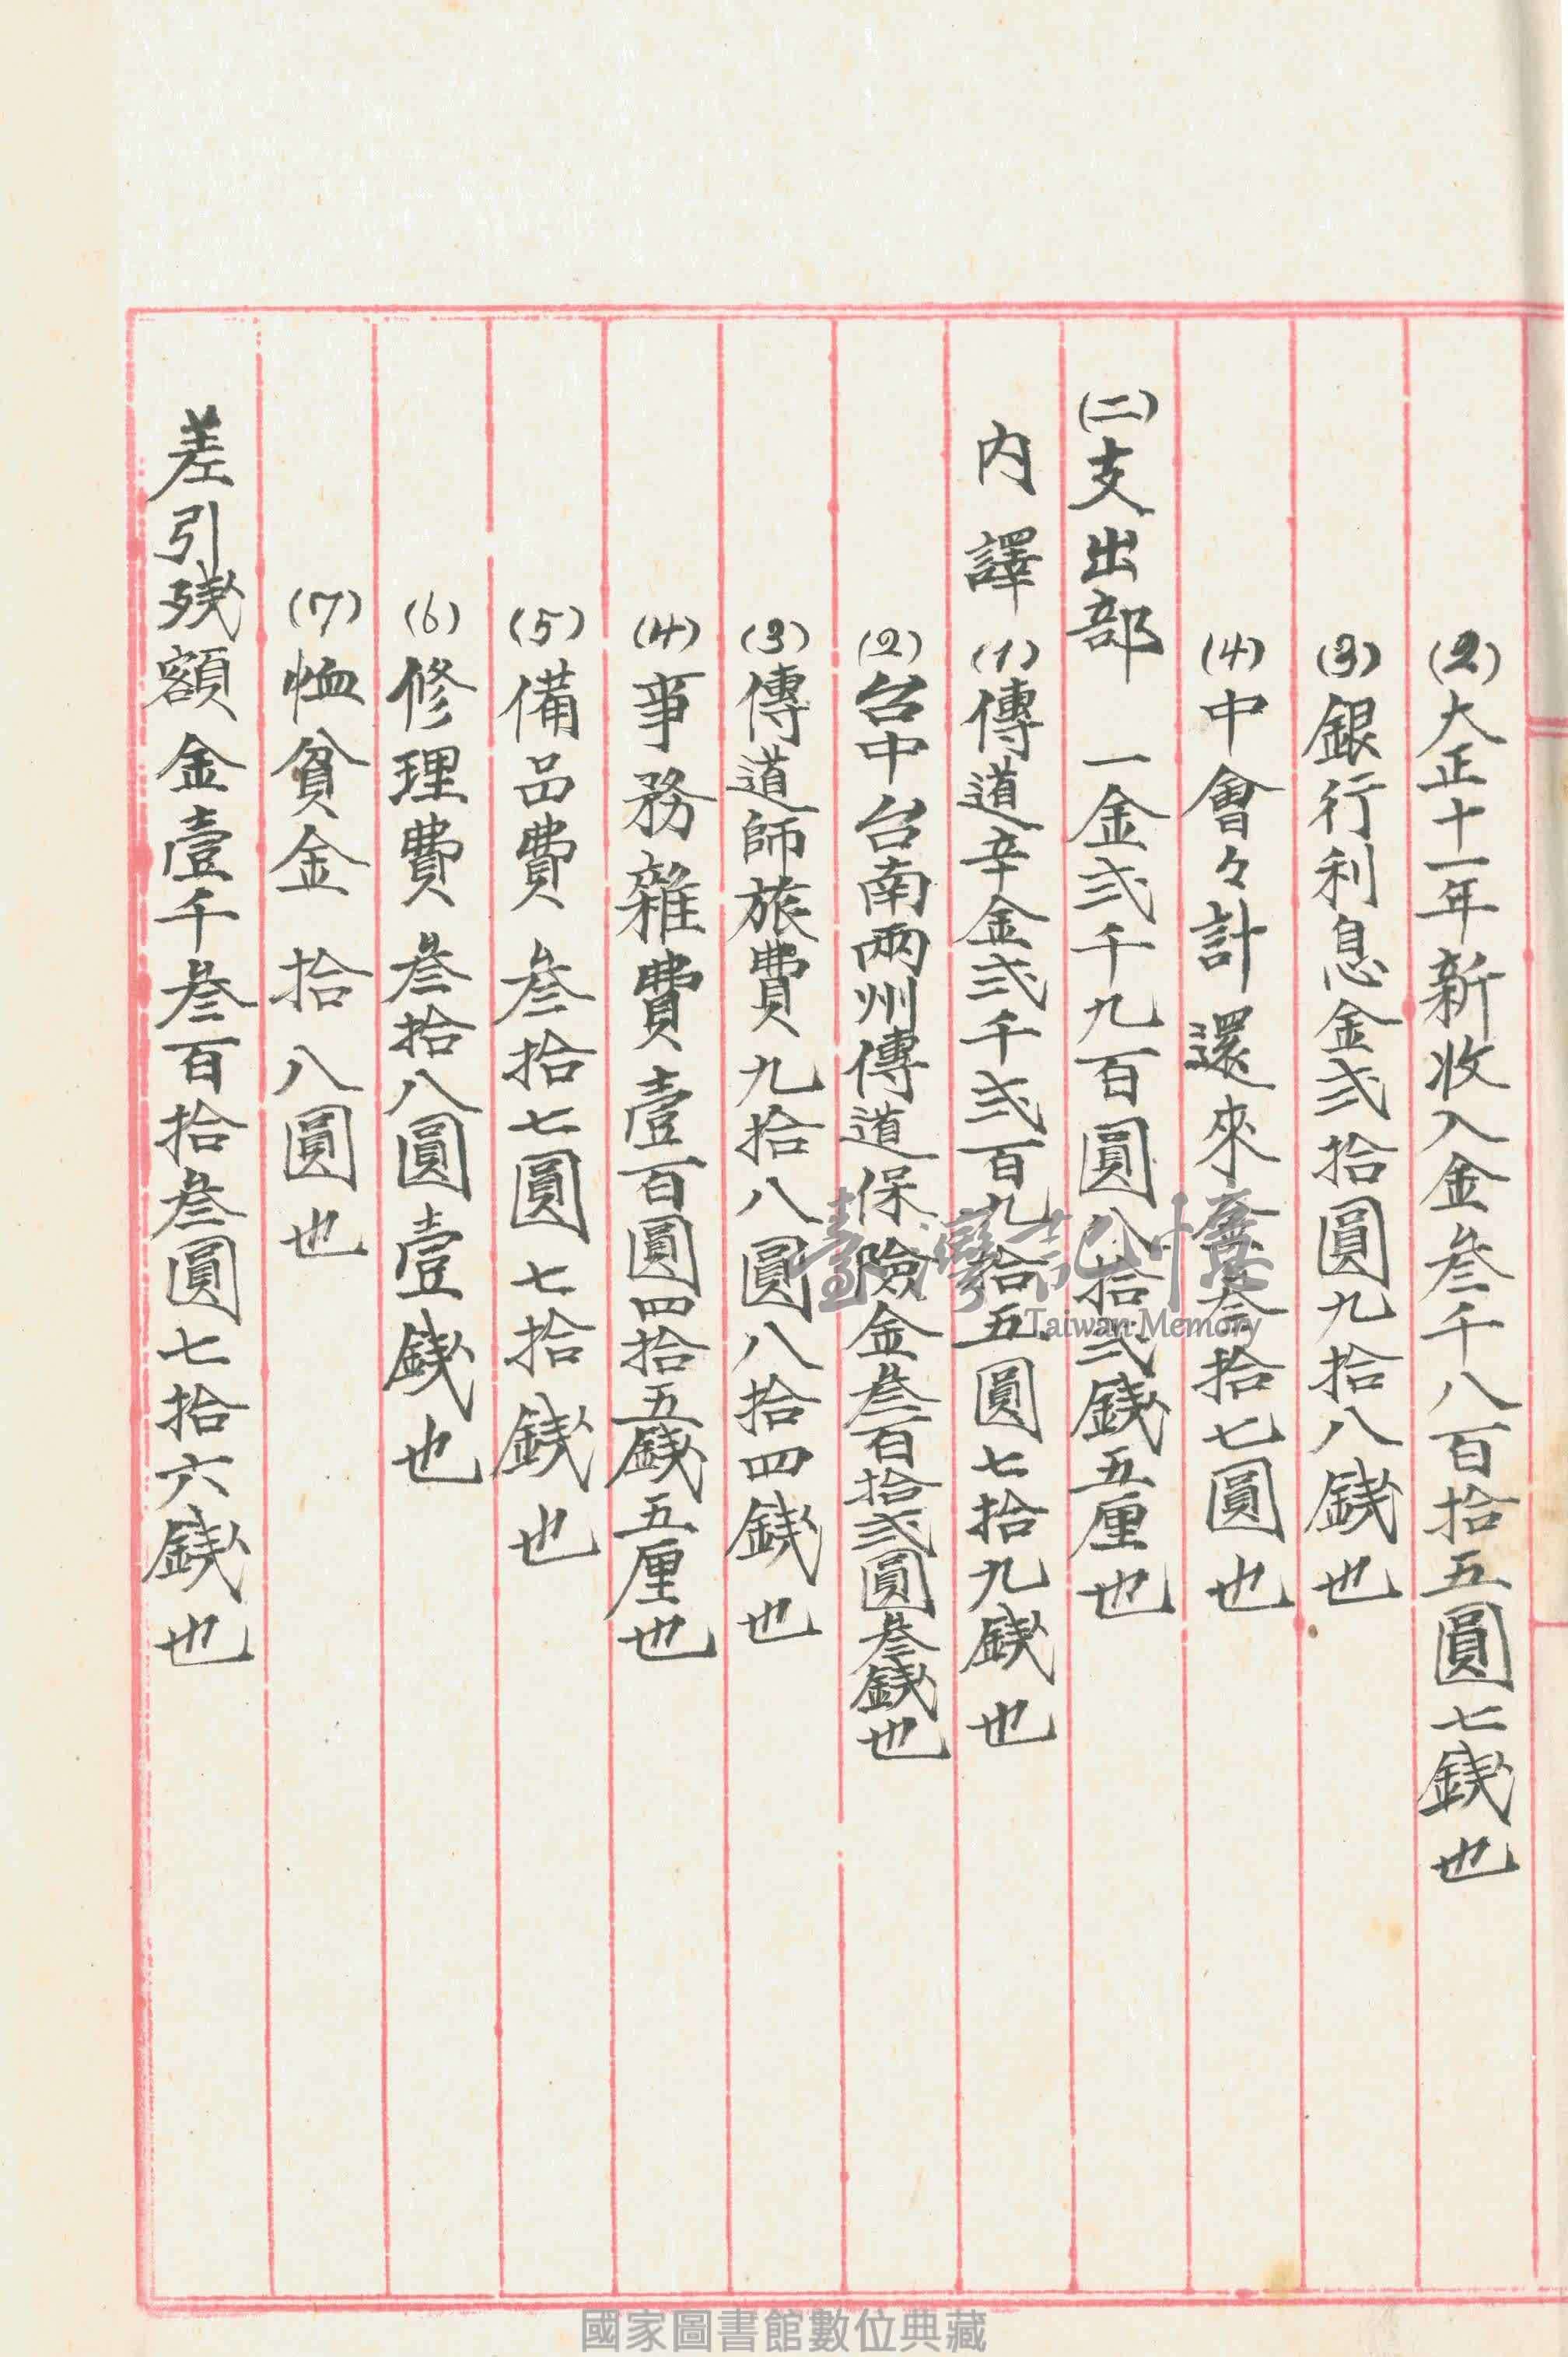 (2)大正十一年新收入金叁千八百拾五圓七銭也
(3)銀行利息金弍拾圓九拾八銭也
(4)中會々計還來金叁拾七圓也
(二)支出部 一金弍千九百圓八拾弍銭五厘也
內譯 (1)傳道辛金弍千弍百九拾五圓七拾九銭也
(2)台中台南兩州傳道保險金叁百拾弍圓叁銭也
(3)傳道師旅費九拾八圓八拾四銭也
(4)事務雜費壹百圓四拾五銭五厘也
(5)備品費叁拾七圓七拾銭也
(6)修理費叁拾八圓壹銭也
(7)恤貧金拾八圓也
差引残額金壹千叁百拾叁圓七拾六銭也
臺灣記憶
Taiwan Memory
國家圖書館數位典藏